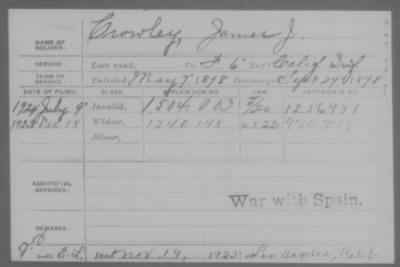 Crowley, James J.
NAME OF SOLDIER:
SERVICE: Late rank, Co. F. 6 Reg't Calif Inf
TERM OF SERVICE: Enlisted May 7 1898 Discharged Sept 24 1898
DATE OF FILING. CLASS. APPLICATION NO. LAW. CERTIFICATE NO.
1920 July 9 Invalid, 1.504.003 1256931
1923 Dec. 18 Widow, 1240.148
Minor,
ADDITIONAL SERVICES:
War with Spain.
REMARKS:
Died Nov 19, 1923; Los Angeles, Calif.